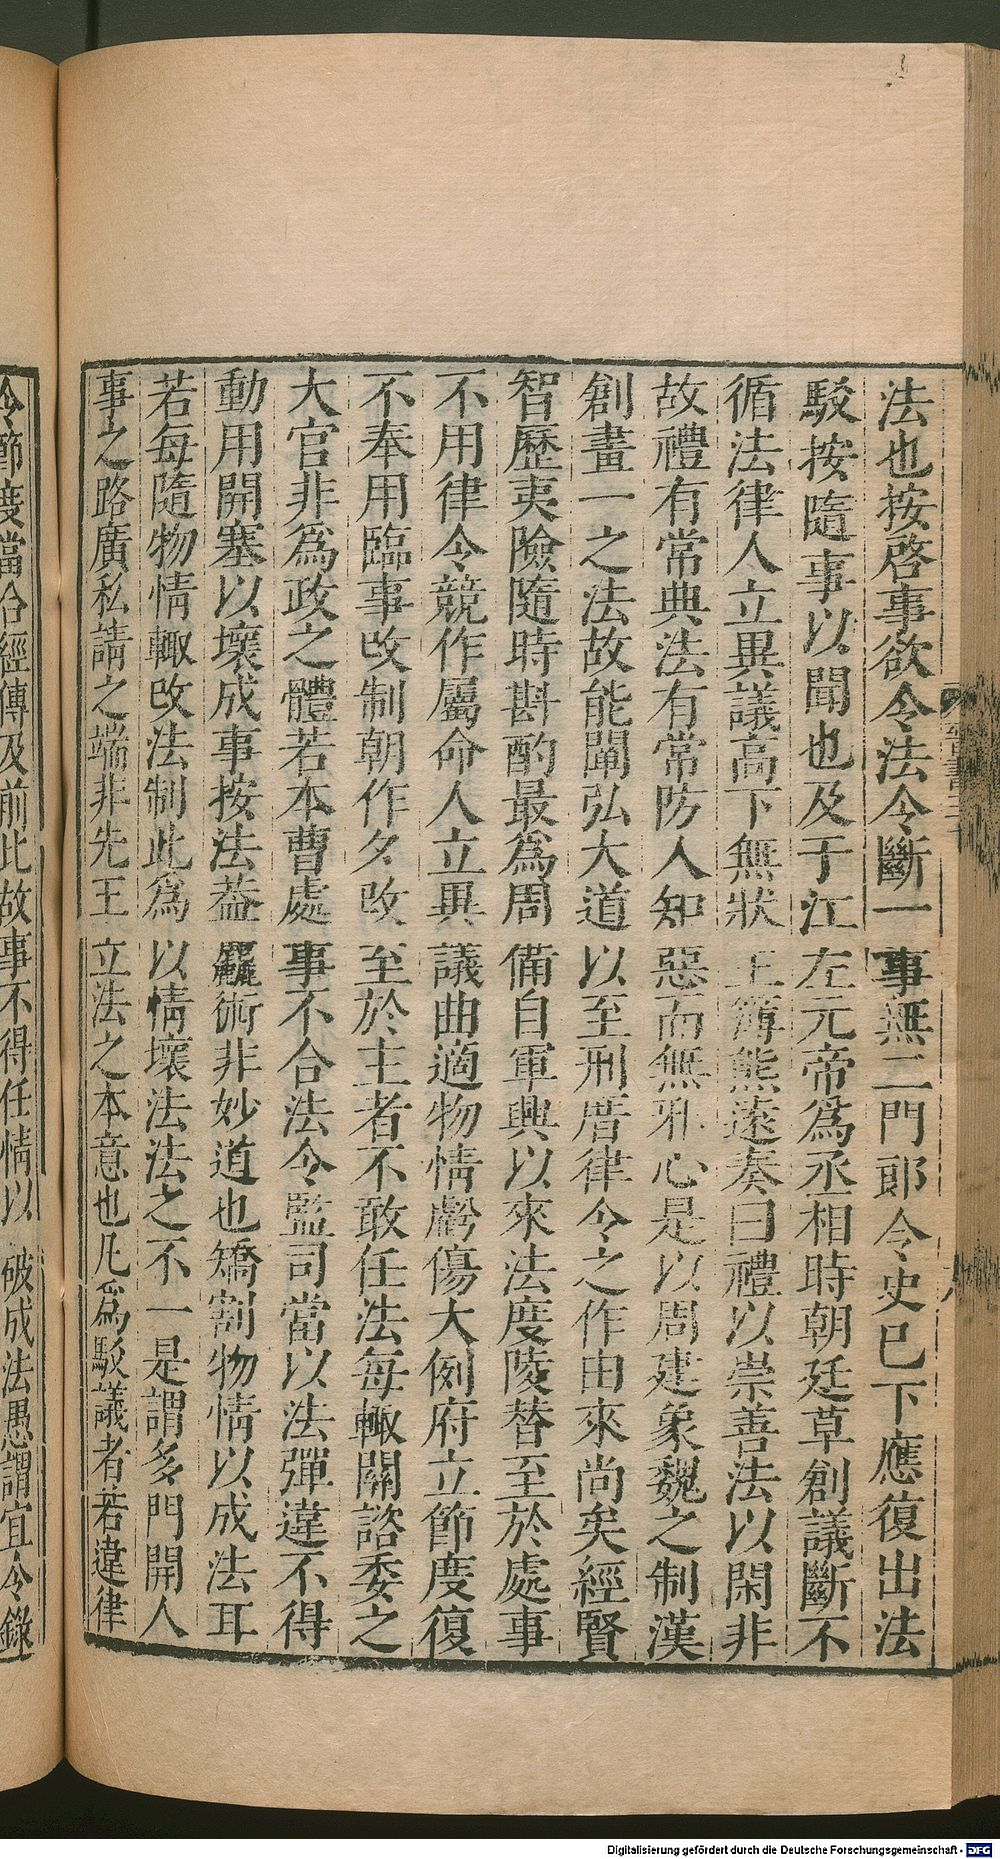 法也按啓事欲令法令斷一事無二門郎令史已下應復出法
駮按隨事以聞也及于江左元帝爲丞相時朝廷草創議斷不
循法律人立異議高下無狀主簿熊遠奏曰禮以崇善法以閑非
故禮有常典法有常防人知惡而無邪心是以周建象魏之制漢
創畫一之法故能闡弘大道以至刑厝律令之作由來尚矣經賢
智歷夷險隨時斟酌最爲周備自軍興以來法度陵替至於處事
不用律令競作屬命人立異議曲適物情虧傷大例府立節度復
不奉用臨事改制朝作夕改至於主者不敢任法每輙關諮委之
大官非爲政之體若本曹處事不合法令監司當以法彈違不得
動用開塞以壞成事按法葢麤術非妙道也矯割物情以成法耳
若每隨物情輙改法制此爲以情壞法法之不一是謂多門開人
事之路廣私請之端非先王立法之本意也凡爲駮議者若違律
令節度當合經傳及前此故事不得任情以破成法愚謂宜令錄
Digitalisierung gefördert durch die Deutsche Forschungsgemeinschaft - DFG